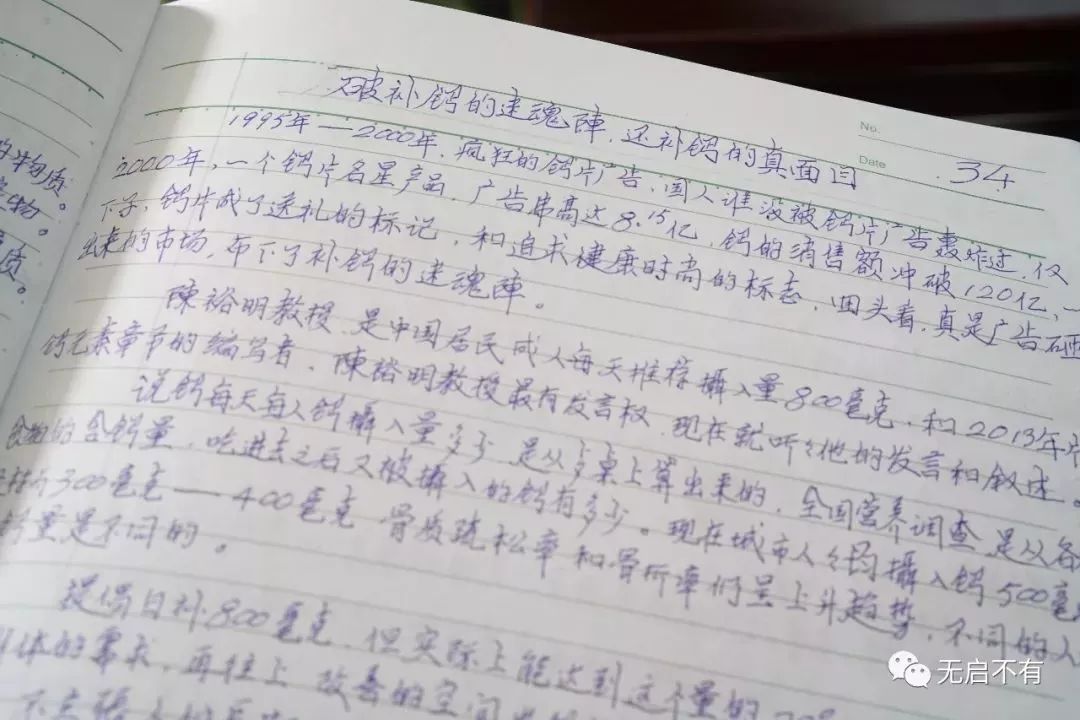 No.
Date
34
破补钙的迷魂陣，还补钙的真面目
1995年—2000年，疯狂的钙片广告，国人谁没被钙片广告轰炸过，仅
2000年，一个钙片名星产品，广告串高达8.15亿，钙的消售额冲破120亿，一
下子，钙片成了送礼的标记，和追求健康时尚的标志，回头看，真是广告砸
出来的市场，布下了补钙的迷魂陣。
陳裕明教授，是中国居民成人每天推荐攝入量800毫克，和2013年
钙元素章节的编写者，陳裕明教授最有发言权，现在就听听他的发言和叙述。
说钙每天每人钙攝入量多少，是从桌上算出来的，全国营养调查，是从各
食物的含钙量，吃进去之后又被攝入的钙有多少。现在城市人均攝入钙500毫
300毫克——400毫克，骨质疏松率和骨折率们呈上升趋势，不同的人
量是不同的。
提倡日补800毫克，但实际上能达到这个量的
体的需求，再往上
的物质
物。
质。
无启不有